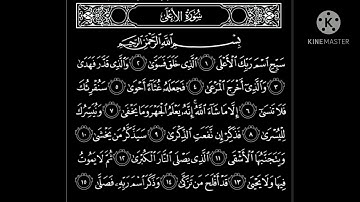 سُورَةُ الأَعْلَى
بِسْمِ اللَّهِ الرَّحْمَٰنِ الرَّحِيمِ
MADE WITH
KINEMASTER
سَبِّحِ اسْمَ رَبِّكَ الْأَعْلَى ١ الَّذِي خَلَقَ فَسَوَّىٰ ٢ وَالَّذِي قَدَّرَ فَهَدَىٰ
٣ وَالَّذِي أَخْرَجَ الْمَرْعَىٰ ٤ فَجَعَلَهُ غُثَاءً أَحْوَىٰ ٥ سَنُقْرِئُكَ
فَلَا تَنسَىٰ ٦ إِلَّا مَا شَاءَ اللَّهُ إِنَّهُ يَعْلَمُ الْجَهْرَ وَمَا يَخْفَىٰ ٧ وَنُيَسِّرُكَ
لِلْيُسْرَىٰ ٨ فَذَكِّرْ إِن نَّفَعَتِ الذِّكْرَىٰ ٩ سَيَذَّكَّرُ مَن يَخْشَىٰ ١٠
وَيَتَجَنَّبُهَا الْأَشْقَى ١١ الَّذِي يَصْلَى النَّارَ الْكُبْرَىٰ ١٢ ثُمَّ لَا يَمُوتُ
فِيهَا وَلَا يَحْيَىٰ ١٣ قَدْ أَفْلَحَ مَن تَزَكَّىٰ ١٤ وَذَكَرَ اسْمَ رَبِّهِ فَصَلَّىٰ ١٥